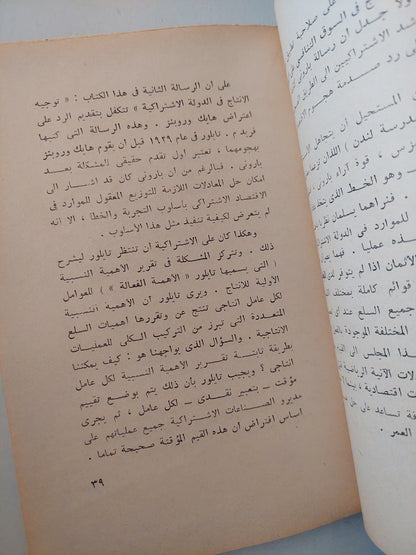 على أن الرسالة الثانية فى هذا الكتاب : « توجيه
الانتاج فى الدولة الاشتراكية » تتكفل بتقديم الرد على
اعتراض هايك وروبنز . وهذه الرسالة التى كتبها
فريد م . تايلور فى ١٩٢٩ قبل أن يقوم هايك وروبنز
بهجومهما ، تعتبر أول تقدم حقيقى للمشكلة بعد
بارونى . فبالرغم من أن بارونى كان قد أشار الى
امكان حل المعادلات اللازمة للتوزيع المعقول للموارد فى
الاقتصاد الاشتراكى بأسلوب التجربة والخطأ ، الا أنه
لم يتعرض لكيفية تنفيذ مثل هذا الأسلوب .
وهكذا كان على الاشتراكية أن تنتظر تايلور ليشرح
ذلك . وتتركز المشكلة فى تقرير الأهمية النسبية
( التى يسميها تايلور « الأهمية الفعالة » ) للعوامل
الأولية للانتاج . ويرى تايلور أن الأهمية النسبية
لكل عامل انتاجى تنتج عن وتقررها أهميات السلع
المتعددة التى تبرز من التركيب الكلى للعمليات
الانتاجية . والسؤال الذى يواجهنا هو : كيف يمكننا
بطريقة ثابتة تقرير الأهمية النسبية لكل عامل
انتاجى ؟ ويجيب تايلور بأن ذلك يتم بوضع تقييم
مؤقت – بتعبير نقدى – لكل عامل ، ثم يجرى
مديرو الصناعات الاشتراكية جميع عملياتهم على
أساس افتراض أن هذه القيم المؤقتة صحيحة تماما .
٣٩
على صلاحية
فى السوق التنافس
ولا جدل أن رسالة بارونى
الاشتراكيين الى الطريق
رد صدمة هجوم
المستحيل أن يتجاهل
مدرسة لندن ) اللذان تزعما
قوة آراء بارونى
– وهو الخط الذى
فنراهما يسلمان نظريا
للموارد فى الدولة الاشتراكية
هذه عمليا . فهما
الأثمان اذا لم يتوفر لدى
قوائم كاملة بمختلف
جميع السلع عند أى
المختلفة الموجودة
هذا المجلس الى
لات الآنية الرياضية
اقتصادية ،
تساعد على حل
العمر .